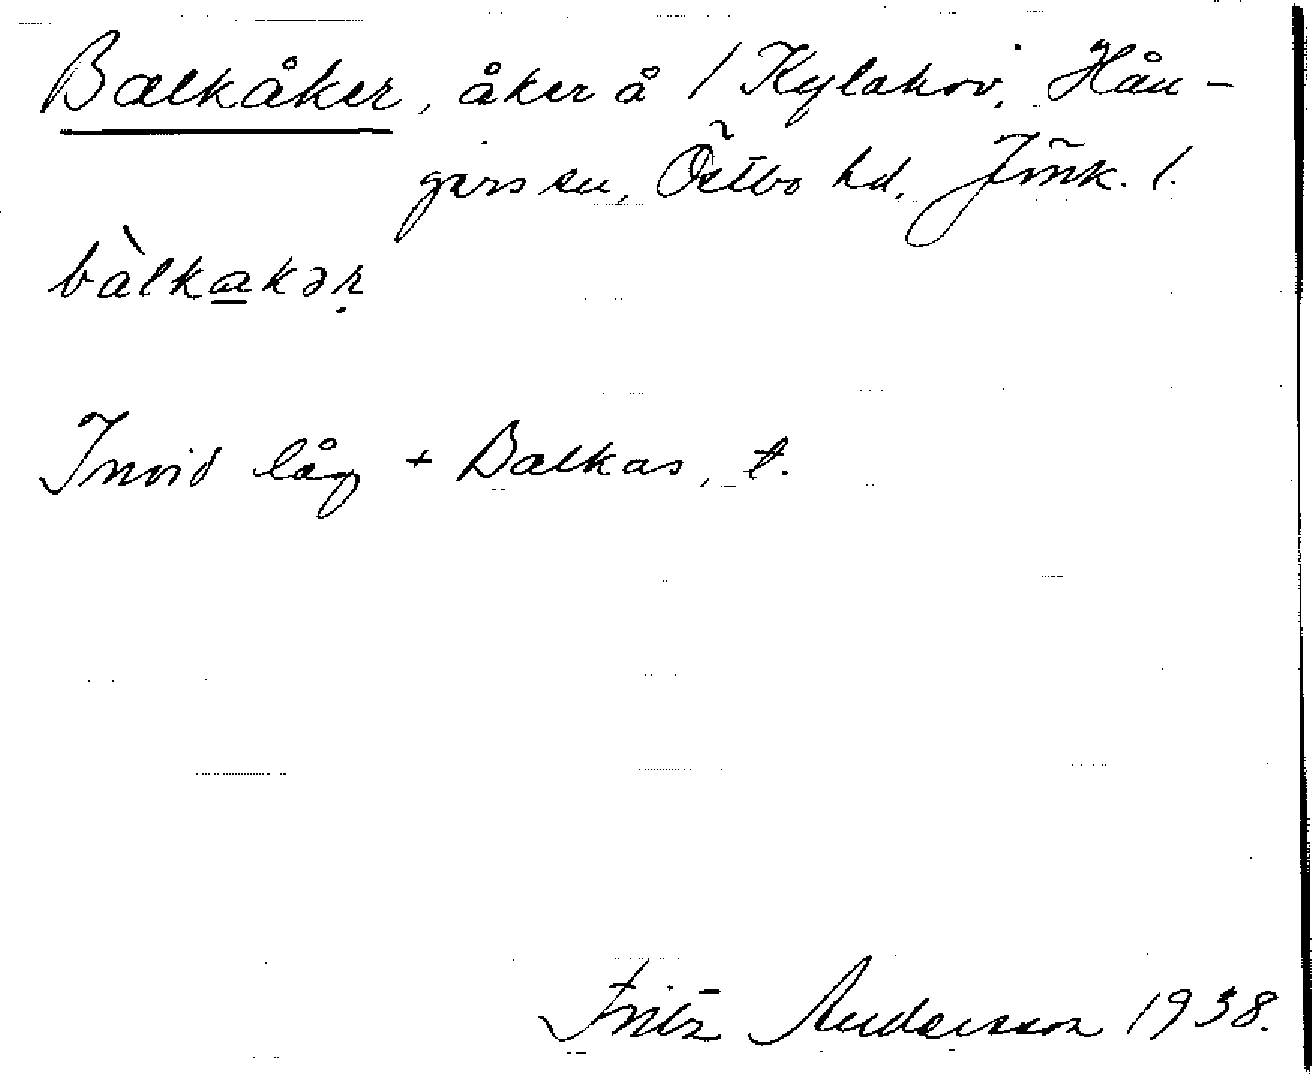 Balkåker, åker å 1 Kylahov, Hån-
gers sn, Östbo hd, Jönk. l.
bàlkakər
Invid låg + Balkas, t.
Fritz Andersson 1938.